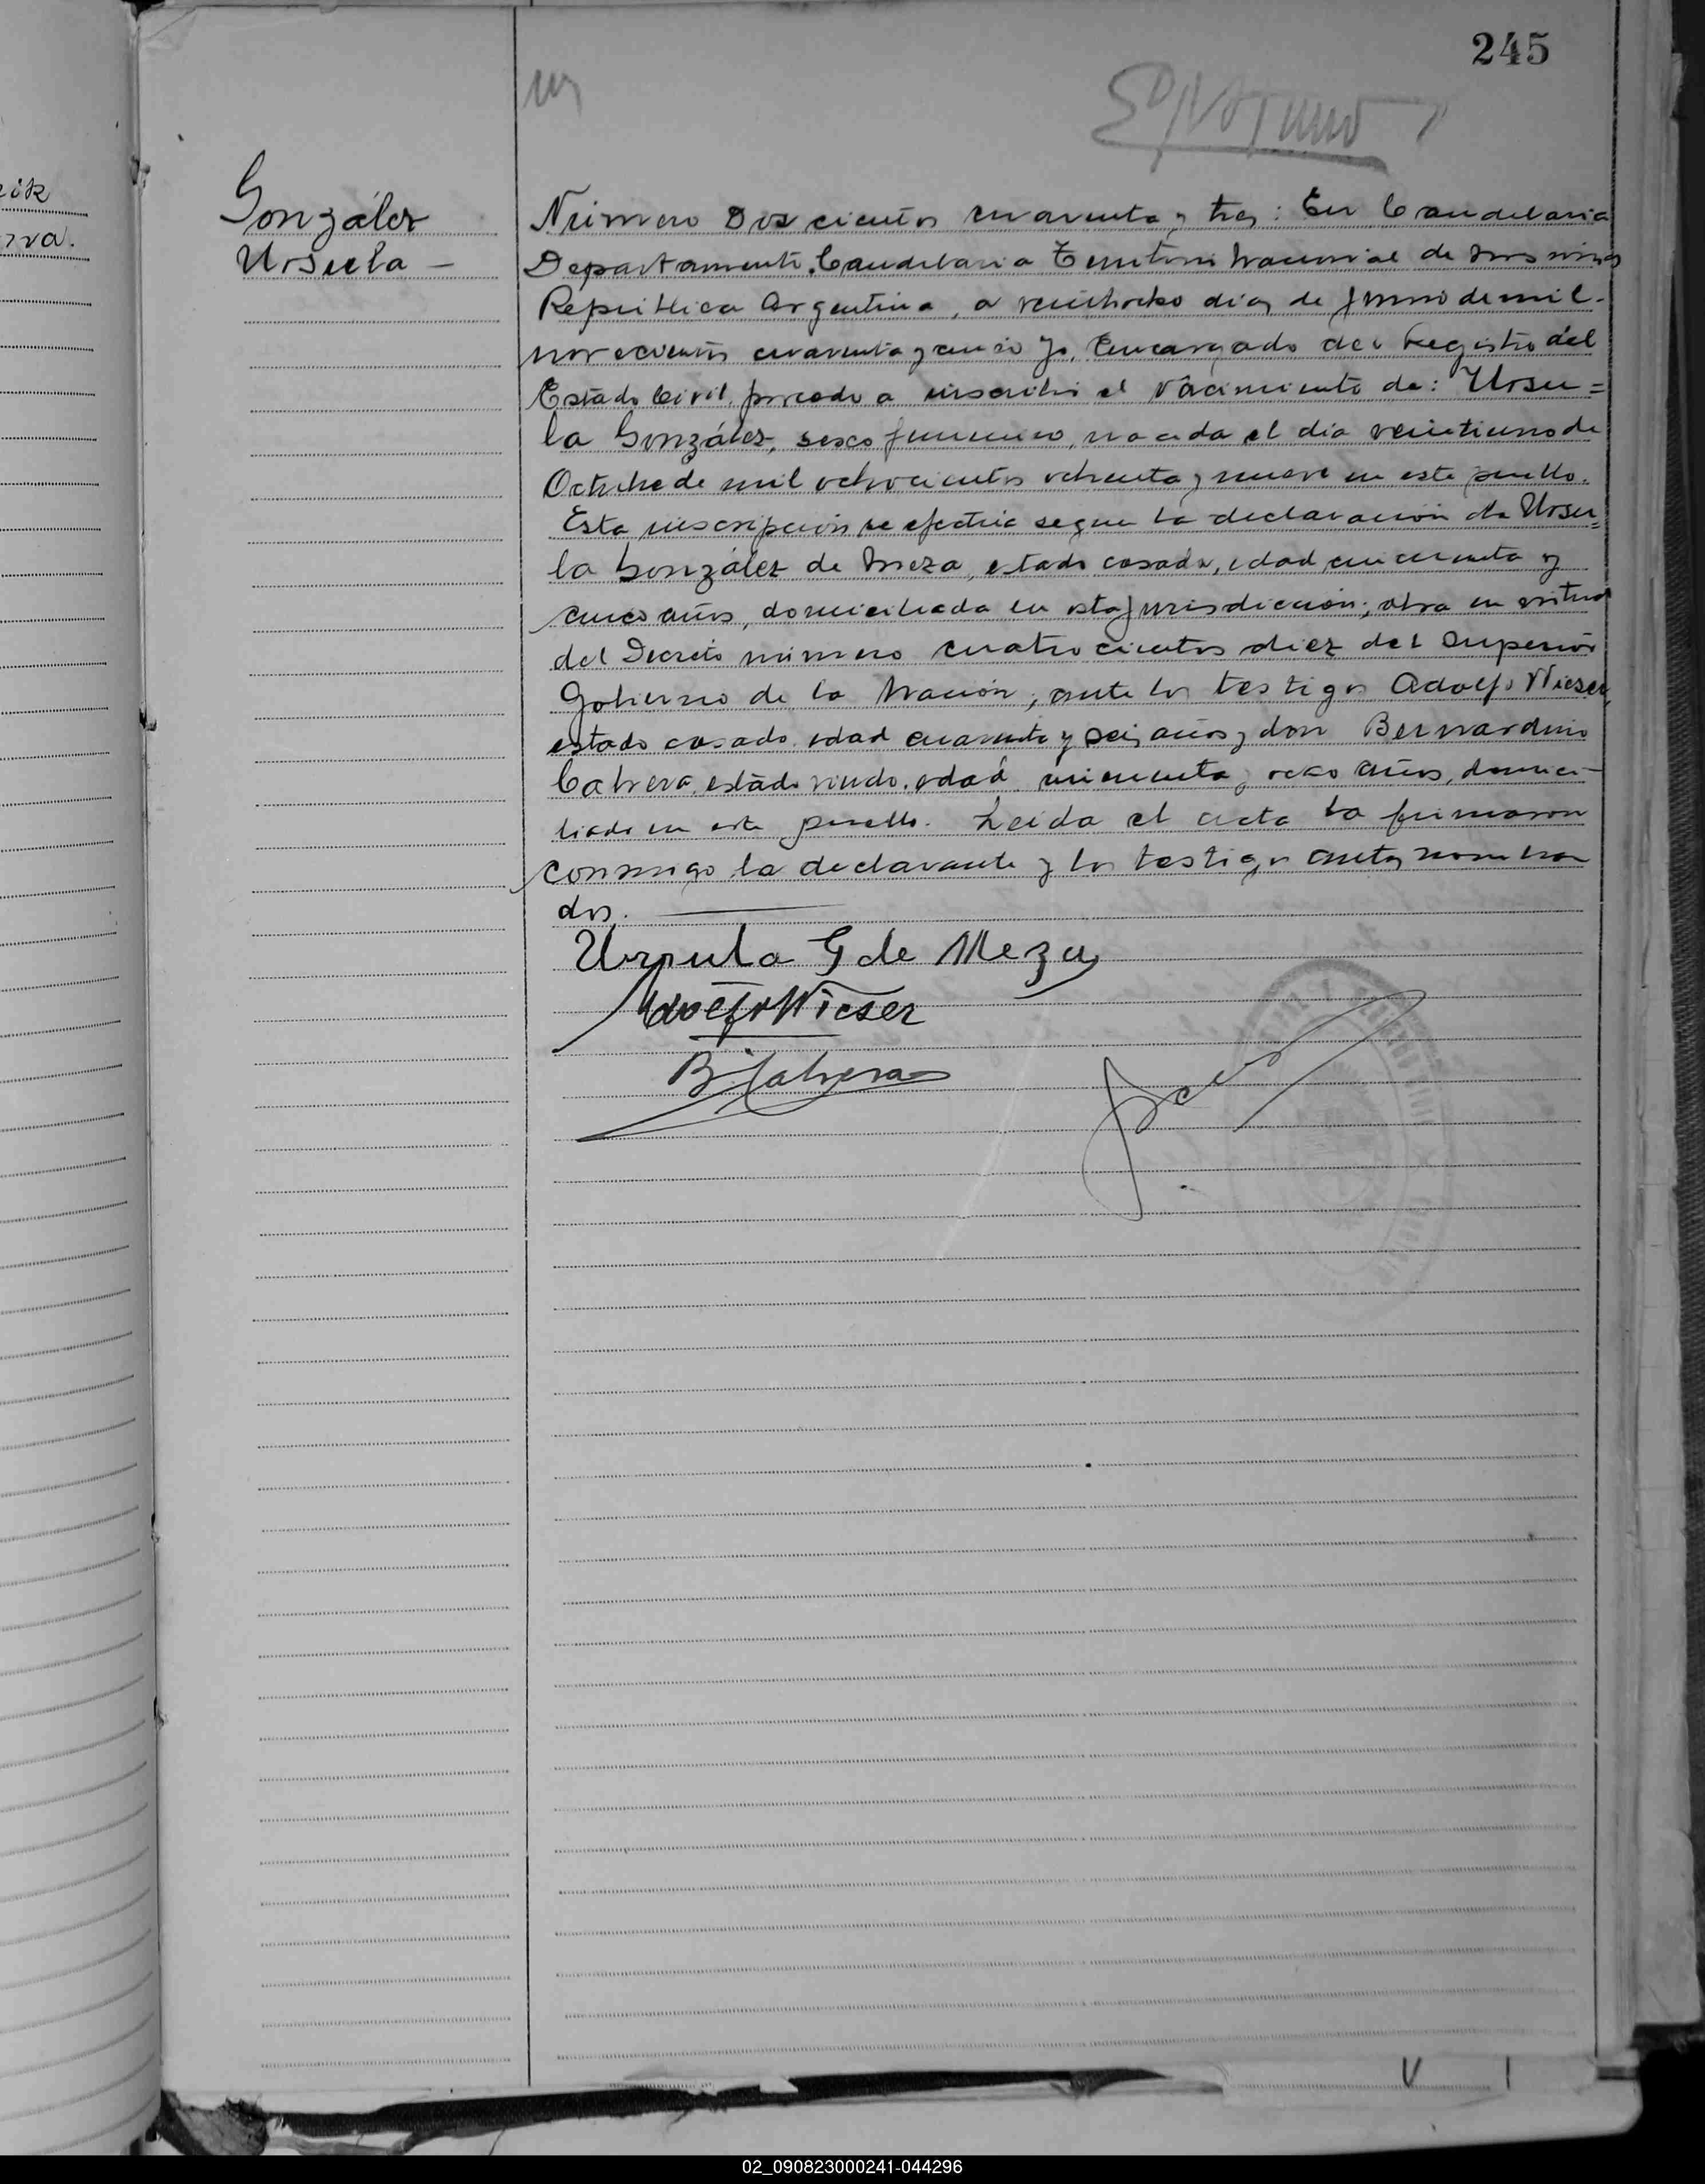 245
González
Ursula —
Número Doscientos cuarenta y tres: En Candelaria
Departamento Candelaria Territorio Nacional de Misiones
República Argentina, a veintiocho días de Junio de mil-
novecientos cuarenta y cinco yo, Encargado del Registro del
Estado Civil, procedo a inscribir el Nacimiento de: Ursu=
la González, sexo femenino, nacida el día veintiuno de
Octubre de mil ochocientos ochenta y nueve en este pueblo.
Esta inscripción se efectúa según la declaración de Ursu=
la González de Meza, estado casada, edad cincuenta y
cinco años, domiciliada en esta jurisdicción; obra en virtud
del Decreto número cuatrocientos diez del Superior
Gobierno de la Nación; ante los testigos Adolfo Wieser,
estado casado, edad cuarenta y seis años y don Bernardino
Cabrera, estado viudo, edad cincuenta y ocho años, domici-
liados en este pueblo. Leída el acta la firmaron
conmigo la declarante y los testigos antes nombra
dos.
Ursula G de Meza
Adolfo Wieser
B Cabrera
02_090823000241-044296